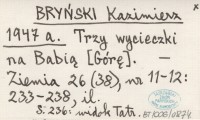 BRYŃSKI Kazimierz
1947 a. Trzy wycieczki
na Babią [Górę]. –
Ziemia 26 (38), nr 11-12:
233–238, il.
S. 236: widok Tatr.
BT1006/0874